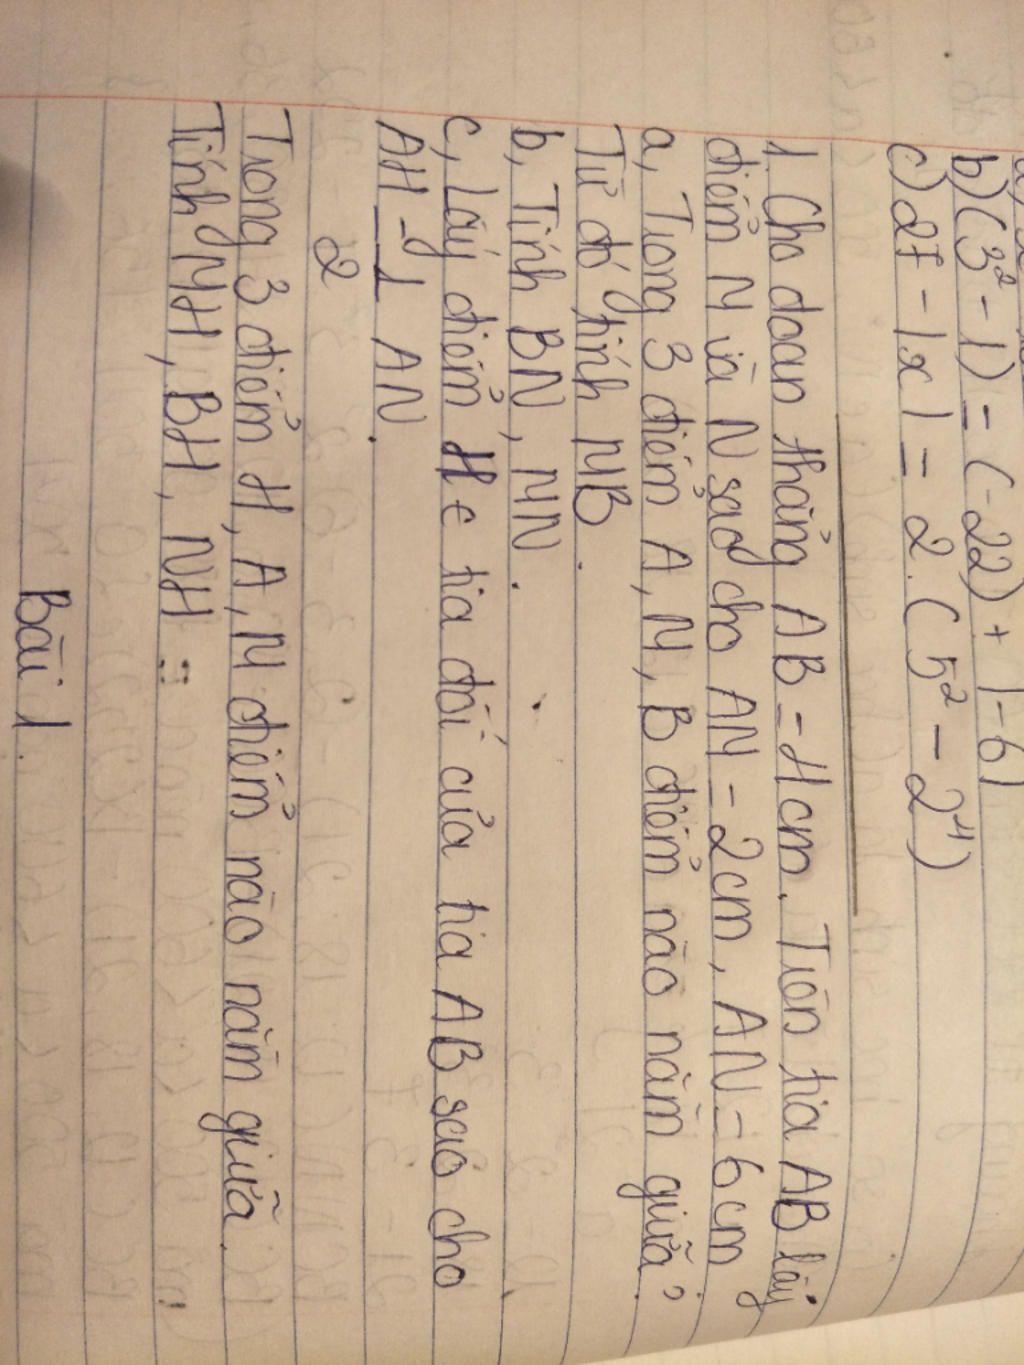 b) (3² - 1) - (-22) + |-6|
c) 27 - |x| = 2. (5² - 2⁴)
1. Cho đoan thẳng AB = 4cm. Trên tia AB lấy
điểm M và N sao cho AM = 2cm, AN = 6cm
a, Trong 3 điểm A, M, B điểm nào nằm giữa?
Từ đó tính MB.
b, Tính BN, MN.
c, Lấy điểm H ∈ tia đối của tia AB sao cho
AH = 1/2 AN.
Trong 3 điểm H, A, M điểm nào nằm giữa.
Tính MH, BH, NH
Bài 1.